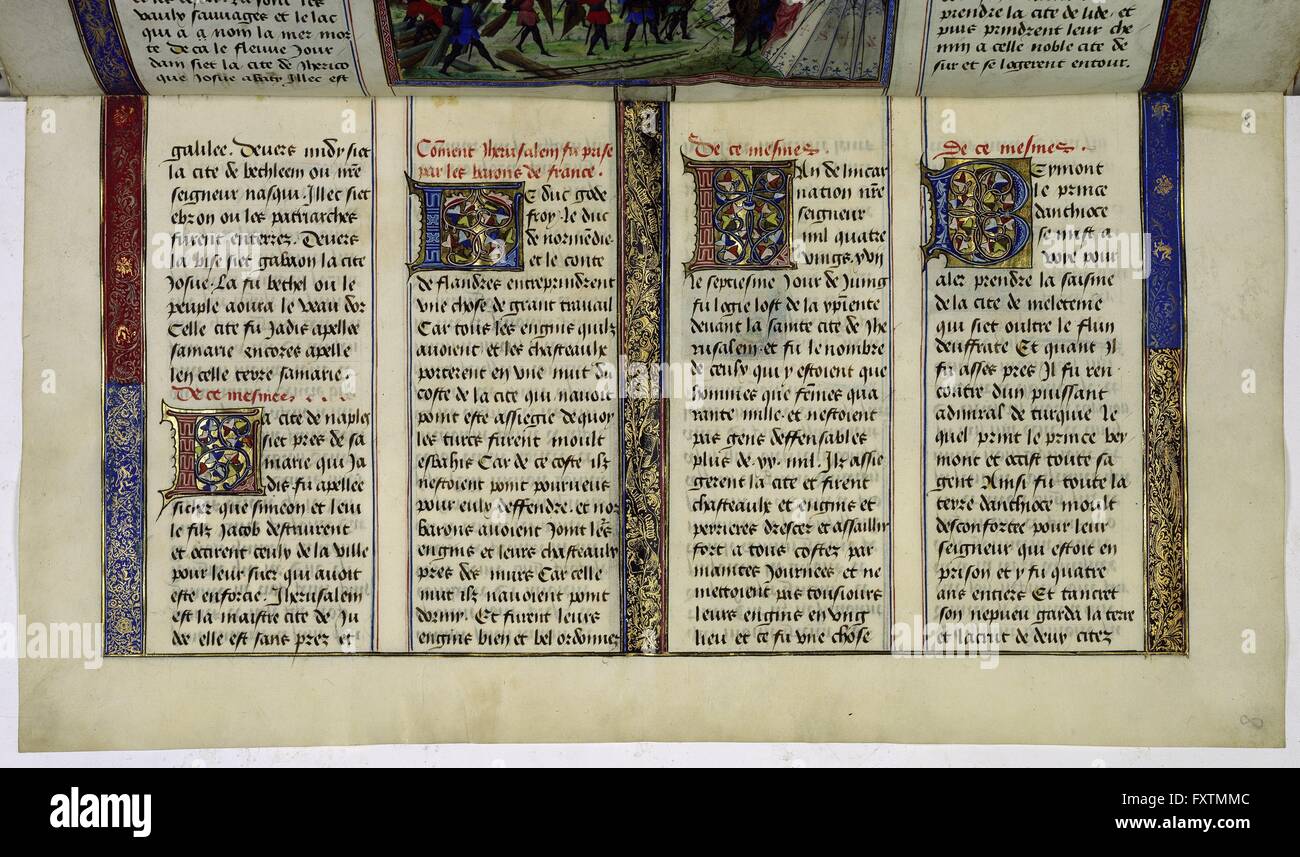 vaulx sauvages et le lac
qui a a nom la mer mor
te De ca le fleuve Jour
dain siet la cite de Jherico
que Josue abati Illec est
galilee. Devers midy siet
la cite de bethleem ou nre
seigneur nasqui. Illec siet
ebron ou les patriarches
furent enterrez. Devers
la bise siet gabaon la cite
Josue. La fu bethel ou le
peuple aoura le veau dor
Celle cite fu Jadis apelee
samarie encores apelle
len celle terre samarie.
De ce mesmes
La cite de naples
siet pres de sa
marie qui Ja
dis fu apellee
sicher que simeon et levi
le filz Jacob destruirent
et occirent ceulx de la ville
pour leur suer qui avoit
este enforcie. Jherusalem
est la maistre cite de Ju
dee elle est sans prez et
Coment Jherusalem fu prise
par les barons de france.
Le duc gode
froy. le duc
de normendie
et le conte
de flandres entreprindrent
une chose de grant travail
Car tous les engins quilz
avoient et les chasteaulx
porterent en une nuit du
coste de la cite qui navoit
point este assiegie de quoy
les turcs furent moult
esbahis Car de ce coste ilz
nestoient point pourveus
pour eulx deffendre. et noz
barons avoient Joint les
engins et leurs chasteaulx
pres des murs Car celle
nuit ilz navoient point
dormy. Et furent leurs
engins bien et bel ordonner
prendre la cite de lide. et
puis prindrent leur che
min a celle noble cite de
sur et se logerent entour.
De ce mesmes.
An de lincar
nation nre
seigneur
mil quatre
vings. xvii
le septiesme Jour de Juing
fu logie lost de la xpiente
devant la sainte cite de Jhe
rusalem. et fu le nombre
de ceulx qui y estoient que
hommes que femes qua
rante mille. et nestoient
pas gens deffensables
plus de .xx. mil. Ilz assie
gerent la cite et firent
chasteaulx et engins et
perrieres drescer et assaillir
fort a tous costez par
maintes Journees et ne
mettoient pas tousiours
leurs engins en ung
lieu et ce fu une chose
De ce mesmes.
Beymont
le prince
danthioce
se mist a
voye pour
aler prendre la saisine
de la cite de meletenie
qui siet oultre le flun
deuffrate Et quant Il
fu asses pres Il fu ren
contre dun puissant
admiral de turquie le
quel print le prince bey
mont et occist toute sa
gent Ainsi fu toute la
terre danthioce moult
desconfortee pour leur
seigneur qui estoit en
prison et y fu quatre
ans entiers Et tancret
son nepveu garda la terre
et lacrut de deux citez
8
alamy
Image ID: FXTMMC
www.alamy.com